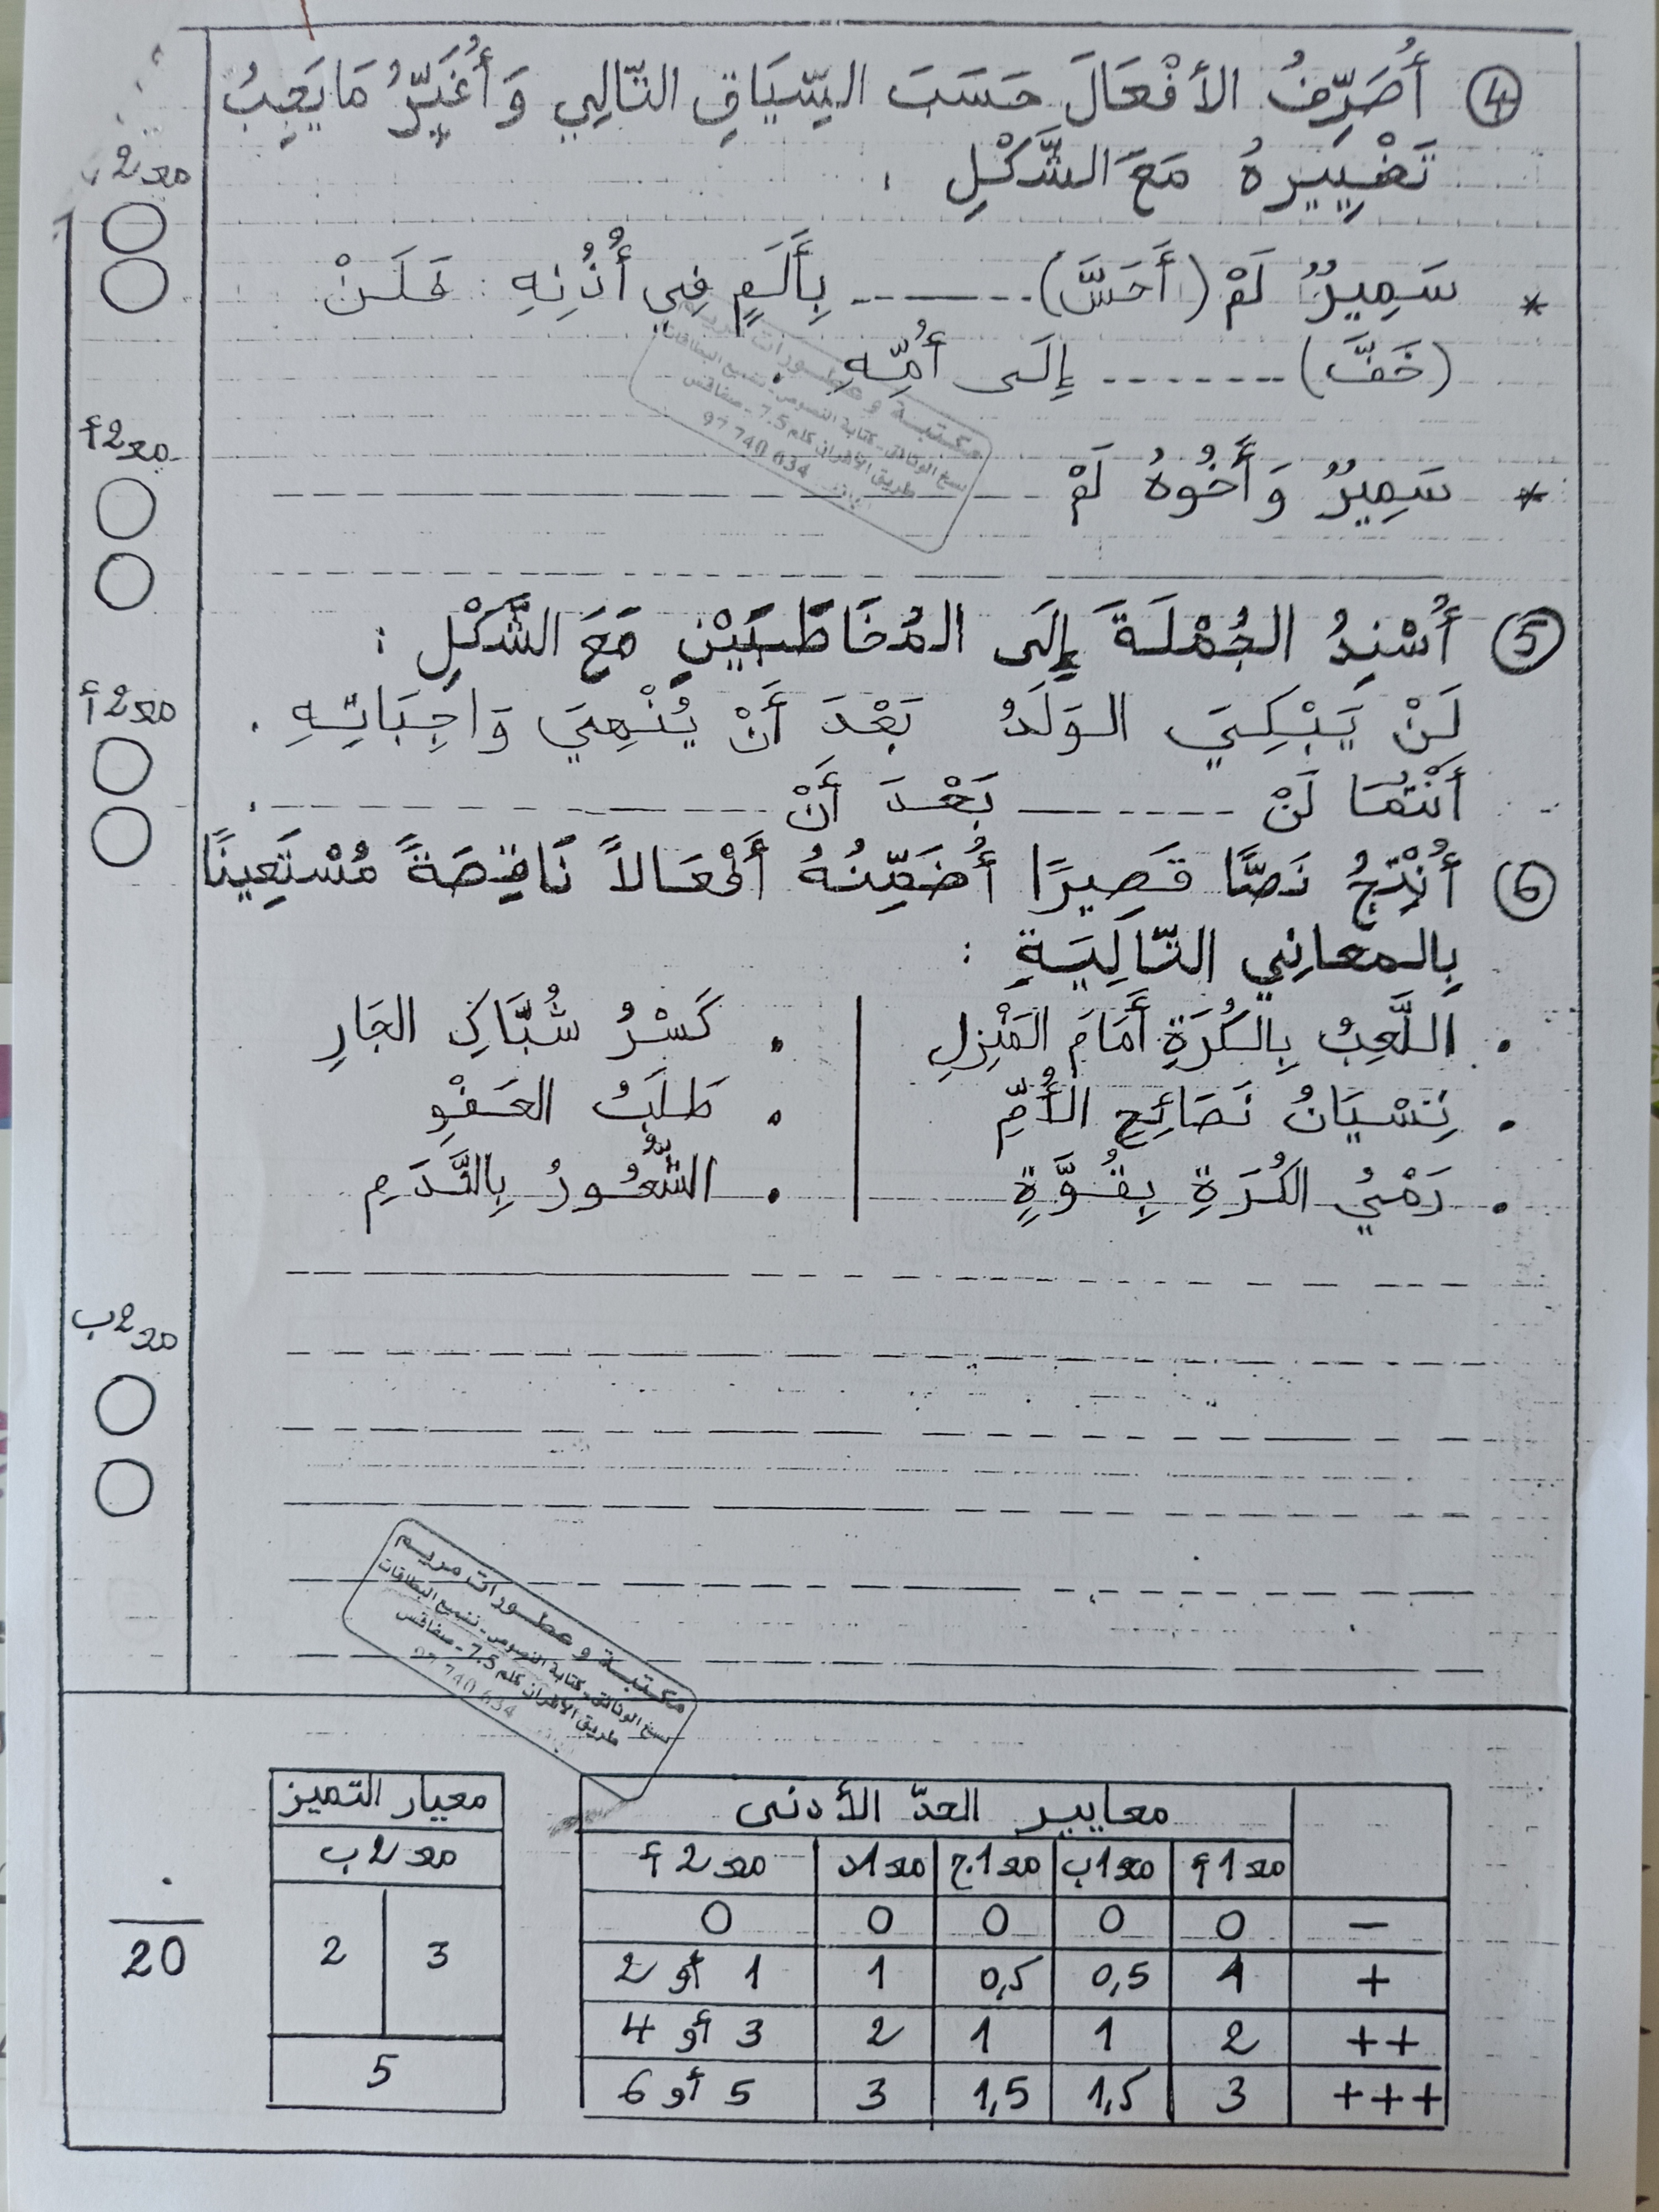 ④ أُصَرِّفُ الأَفْعَالَ حَسَبَ السِّيَاقِ التّالِي وَأُغَيِّرُ مَا يَجِبُ
تَغْيِيرهُ مَعَ الشَّكْلِ :
* سَمِيرٌ لَمْ (أَحَسَّ) ........ بِأَلَمٍ فِي أُذُنِهِ : فَلَنْ
(خَفَّ) ........ إِلَى أُمِّهِ .
* سَمِيرٌ وَأَخُوهُ لَمْ
⑤ أُسْنِدُ الجُمْلَةَ إِلَى المُخَاطَبَيْنِ مَعَ الشَّكْلِ :
لَنْ يَبْكِيَ الوَلَدُ بَعْدَ أَنْ يُنْهِيَ وَاجِبَاتِهِ .
أَنْتُمَا لَنْ ........ بَعْدَ أَنْ ........ .
⑥ أُنْتِجُ نَصًّا قَصِيرًا أُضَمِّنُهُ أَفْعَالاً نَاقِصَةً مُسْتَعِينًا
بِالمعانِي التّالِيَةِ :
• اللَّعِبُ بِالكُرَةِ أَمَامَ المَنْزِلِ
• نِسْيَانُ نَصَائِحِ الأُمِّ
• رَمْيُ الكُرَةِ بِقُوَّةٍ
• كَسْرُ شُبَّاكِ الجَارِ
• طَلَبُ العَفْوِ
• الشُّعُورُ بِالنَّدَمِ
مع2أ
مع2أ
مع2أ
مع2ب
مكتبة وعطورات مريم
نسخ الوثائق - كتابة النصوص - تلميع البطاقات
طريق الأفران كلم 7.5 - صفاقس
97 740 634
مكتبة وعطورات مريم
نسخ الوثائق - كتابة النصوص - تلميع البطاقات
طريق الأفران كلم 7.5 - صفاقس
97 740 634
معايير الحدّ الأدنى
مع1أ مع1ب مع1ج مع1د مع2أ
— 0 0 0 0 0
+ 1 0,5 0,5 1 1 أو 2
++ 2 1 1 2 3 أو 4
+++ 3 1,5 1,5 3 5 أو 6
معيار التميز
مع2ب
3 2
5
20